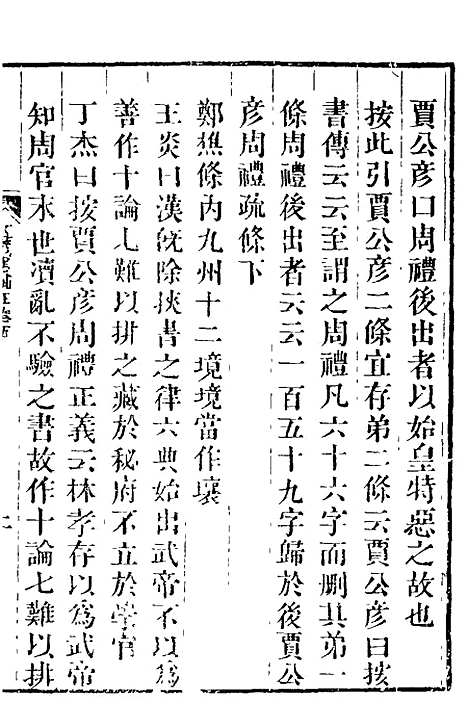 賈公彥曰周禮後出者以始皇特惡之故也
按此引賈公彥二條宜存弟二條云賈公彥曰按
書傳云云至謂之周禮凡六十六字而删其弟一
條周禮後出者云云一百五十九字歸於後賈公
彥周禮疏條下
鄭樵條內九州十二境境當作壤
王炎曰漢旣除挾書之律六典始出武帝不以爲
善作十論七難以排之藏於秘府不立於學官
丁杰曰按賈公彥周禮正義云林孝存以爲武帝
知周官末世瀆亂不驗之書故作十論七難以排